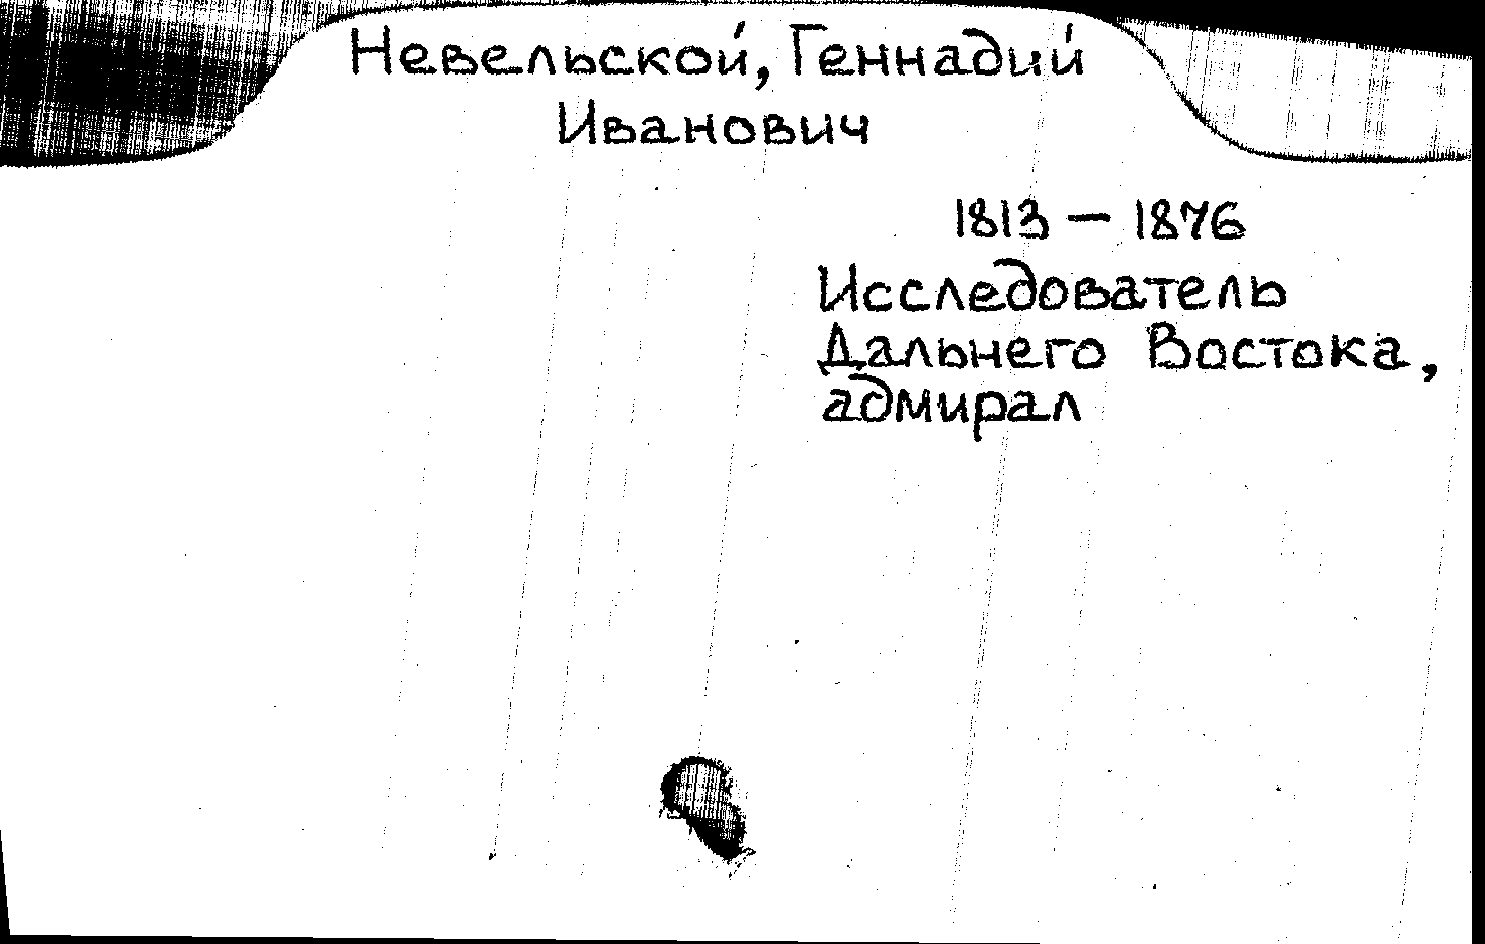 Невельской, Геннадий
Иванович
1813 – 1876
Исследователь
Дальнего Востока,
адмирал